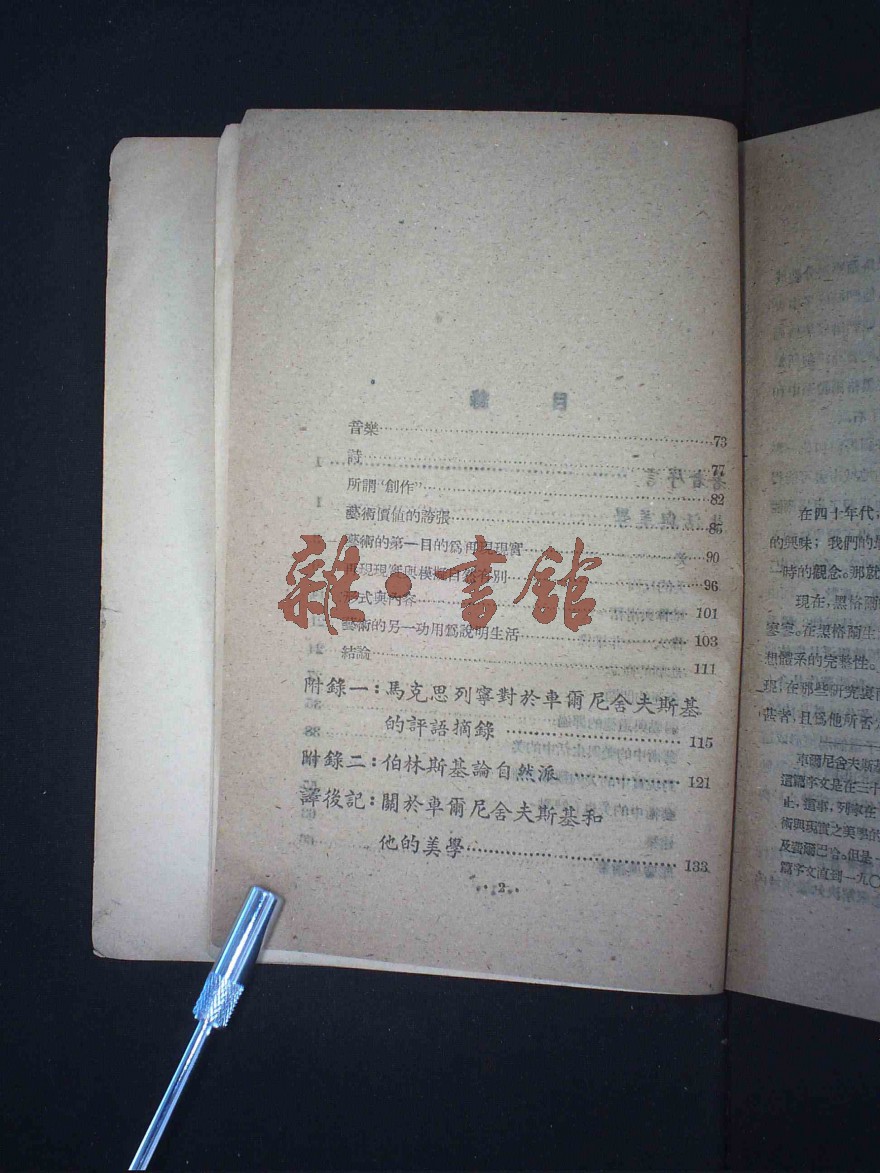 音樂 73
詩 77
所謂“創作” 82
藝術價值的誇張 85
藝術的第一目的爲再現現實 90
再現現實與模擬自然有別 96
形式與內容 101
藝術的另一功用爲說明生活 103
結論 111
附錄一：馬克思列寧對於車爾尼舍夫斯基
的評語摘錄 115
附錄二：伯林斯基論自然派 121
譯後記：關於車爾尼舍夫斯基和
他的美學 133
·2·
雜·書館
在四十年代，
的興味；我們的
一時的觀念。那就
現在，黑格爾
寥寥。在黑格爾生
想體系的完整性。
現；在那些研究
甚者，且爲他所
車爾尼舍夫斯
這篇序文是在三十
止，這事，列寧在
術與現實之美學的
及費爾巴哈。但是
篇序文直到一九〇